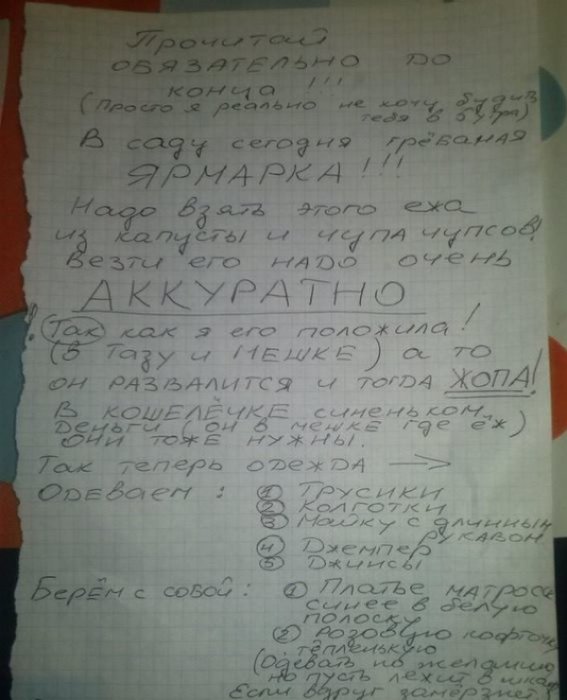 Прочитай
ОБЯЗАТЕЛЬНО ДО
КОНЦА !!!
(Просто я реально не хочу будить
тебя в 6 утра)
В саду сегодня грёбаная
ЯРМАРКА!!!
Надо взять этого ежа
из капусты и чупа чупсов!
Везти его НАДО очень
АККУРАТНО
! Так как я его положила!
(В Тазу и МЕШКЕ) а то
он РАЗВАЛИТСЯ и тогда ЖОПА!
В КОШЕЛЁЧКЕ синеньком
Деньги (он в мешке где ёж)
они тоже нужны.
Так теперь одежда →
Одеваем: ① Трусики
② Колготки
③ Майку с длинным
рукавом
④ Джемпер
⑤ Джинсы
Берём с собой: ① Платье матроса
синее в белую
полоску
② розовую кофточку
тёпленькую
(Одевать по желанию
но пусть лежит в шкаф
Если вдруг замёрзнет)